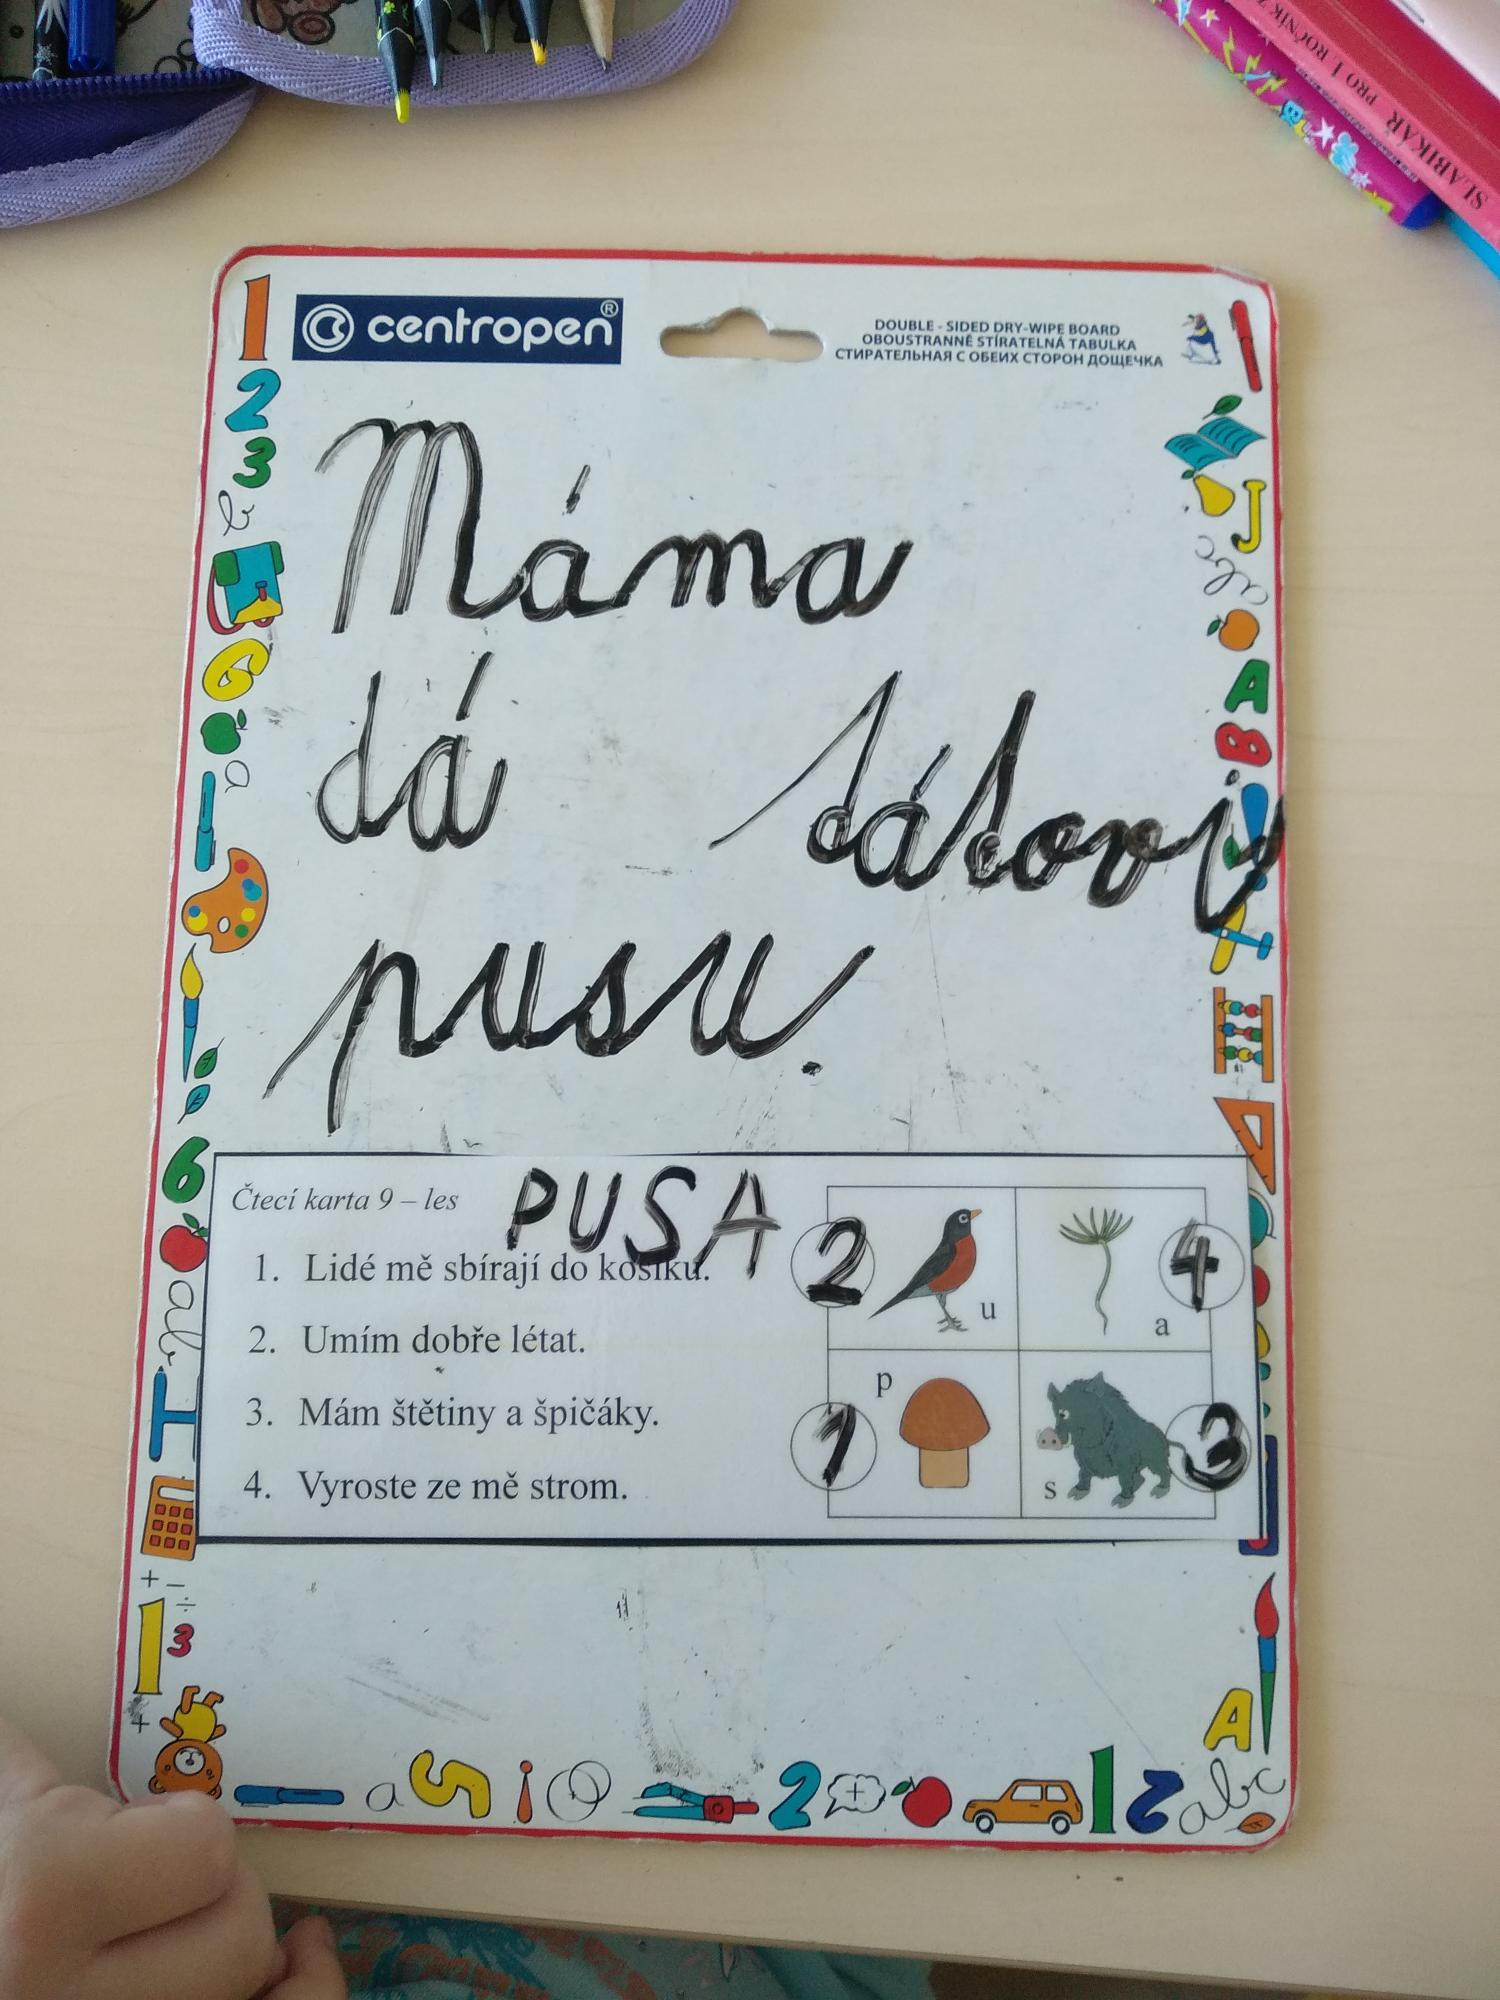 SLABIKÁŘ PRO 1 ROČNÍK
centropen®
DOUBLE - SIDED DRY-WIPE BOARD
OBOUSTRANNĚ STÍRATELNÁ TABULKA
СТИРАТЕЛЬНАЯ С ОБЕИХ СТОРОН ДОЩЕЧКА
Máma
dá tátovi
pusu.
Čtecí karta 9 – les PUSA
1. Lidé mě sbírají do košíku.
2. Umím dobře létat.
3. Mám štětiny a špičáky.
4. Vyroste ze mě strom.
2 u a 4
1 p s 3